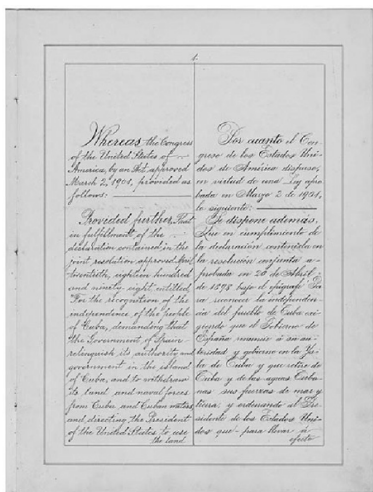 1.
Whereas the Congress
of the United States of
America, by an Act approved
March 2, 1901, provided as
follows:
Provided further, That
in fulfillment of the
declaration contained in the
joint resolution approved April
twentieth, eighteen hundred
and ninety eight, entitled
For the recognition of the
independence of the people
of Cuba, demanding that
the Government of Spain
relinquish its authority and
government in the island
of Cuba, and to withdraw
its land and naval forces
from Cuba and Cuban waters,
and directing the President
of the United States to use
the land
Por cuanto el Con-
greso de los Estados Uni-
dos de América dispuso,
en virtud de una Ley apro-
bada en Marzo 2 de 1901,
lo siguiente:
Se dispone además,
Que en cumplimiento de
la declaración contenida en
la resolución conjunta a-
probada en 20 de Abril
de 1898 bajo el epígrafe Pa-
ra reconocer la independen-
cia del pueblo de Cuba exi-
giendo que el Gobierno de
España renuncie á su au-
toridad y gobierno en la Ys-
la de Cuba y que retire de
Cuba y de las aguas Cuba-
nas sus fuerzas de mar y
tierra; y ordenando al Pre-
sidente de los Estados Uni-
dos que para llevar á
efecto